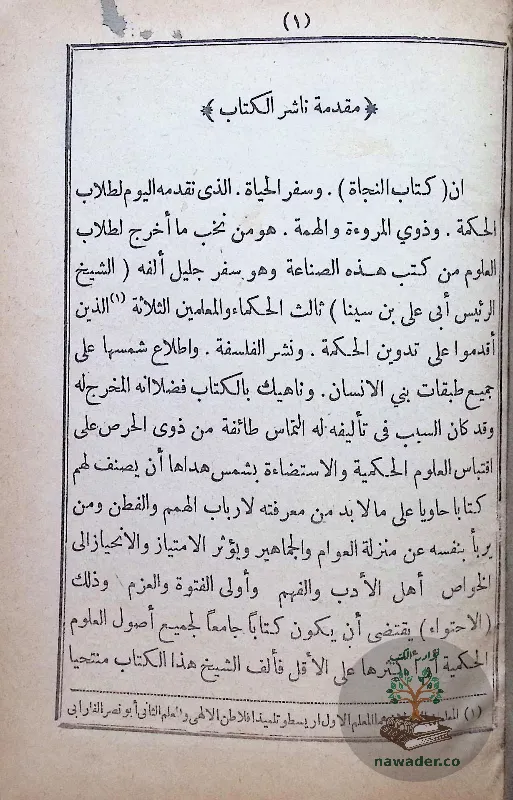 (١)
﴿ مقدمة ناشر الكتاب ﴾
ان ( كتاب النجاة ) . وسفر الحياة . الذى نقدمه اليوم لطلاب
الحكمة . وذوي المروءة والهمة . هو من نخب ما أخرج لطلاب
العلوم من كتب هذه الصناعة وهو سفر جليل ألفه ( الشيخ
الرئيس أبي على بن سينا ) ثالث الحكماء والمعلمين الثلاثة (١) الذين
أقدموا على تدوين الحكمة . ونشر الفلسفة . واطلاع شمسها على
جميع طبقات بني الانسان . وناهيك بالكتاب فضلا انه المخرج له
وقد كان السبب فى تأليفه له التماس طائفة من ذوى الحرص على
اقتباس العلوم الحكمية والاستضاءة بشمس هداها أن يصنف لهم
كتابا حاويا على ما لا بد من معرفته لارباب الهمم والفطن ومن
يربأ بنفسه عن منزلة العوام والجماهير ويؤثر الامتياز والانحياز الى
الخواص أهل الأدب والفهم وأولى الفتوة والعزم وذلك
(الاحتواء) يقتضى أن يكون كتاباً جامعاً لجميع أصول العلوم
الحكمية أو أكثرها على الأقل فألف الشيخ هذا الكتاب منتحيا
(١) المعلم الاول اريسطو تلميذ افلاطن الالهى والمعلم الثانى أبو نصر الفارابى
نوادر الكتب
nawader.co